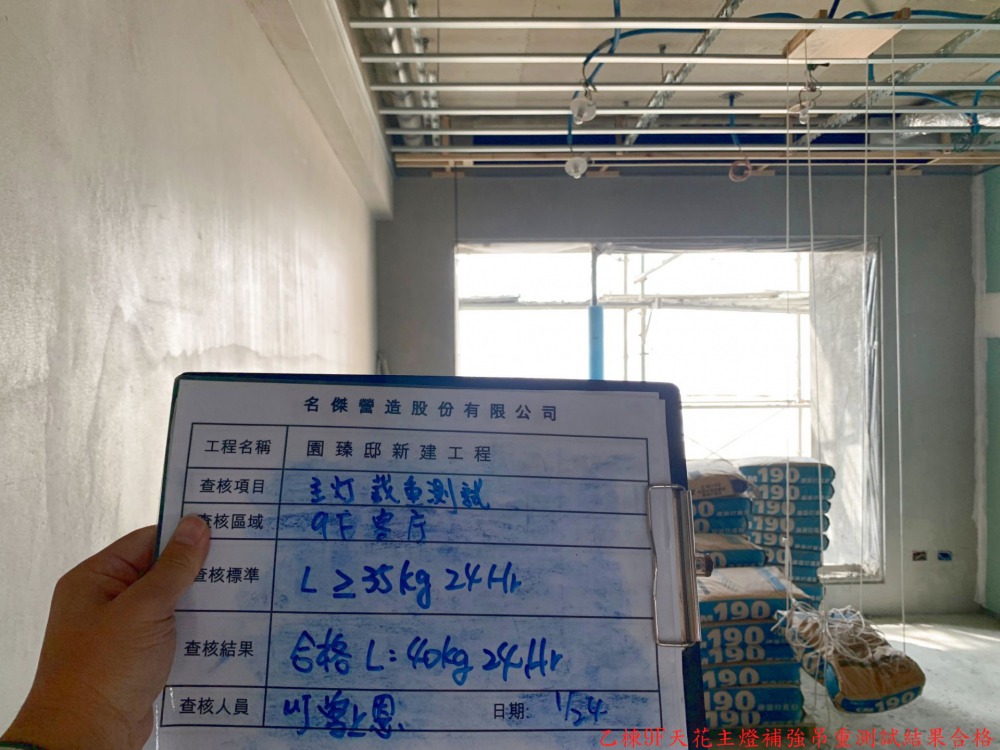 名傑營造股份有限公司
工程名稱 園臻邸新建工程
查核項目 主灯載重測試
查核區域 9F 客厅
查核標準 L ≥ 35kg 24Hr
查核結果 合格 L: 40kg 24Hr
查核人員 日期: 1/24
190
190
190
190
190
190
190
190
190
190
乙棟9F天花主燈補強吊重測試結果合格